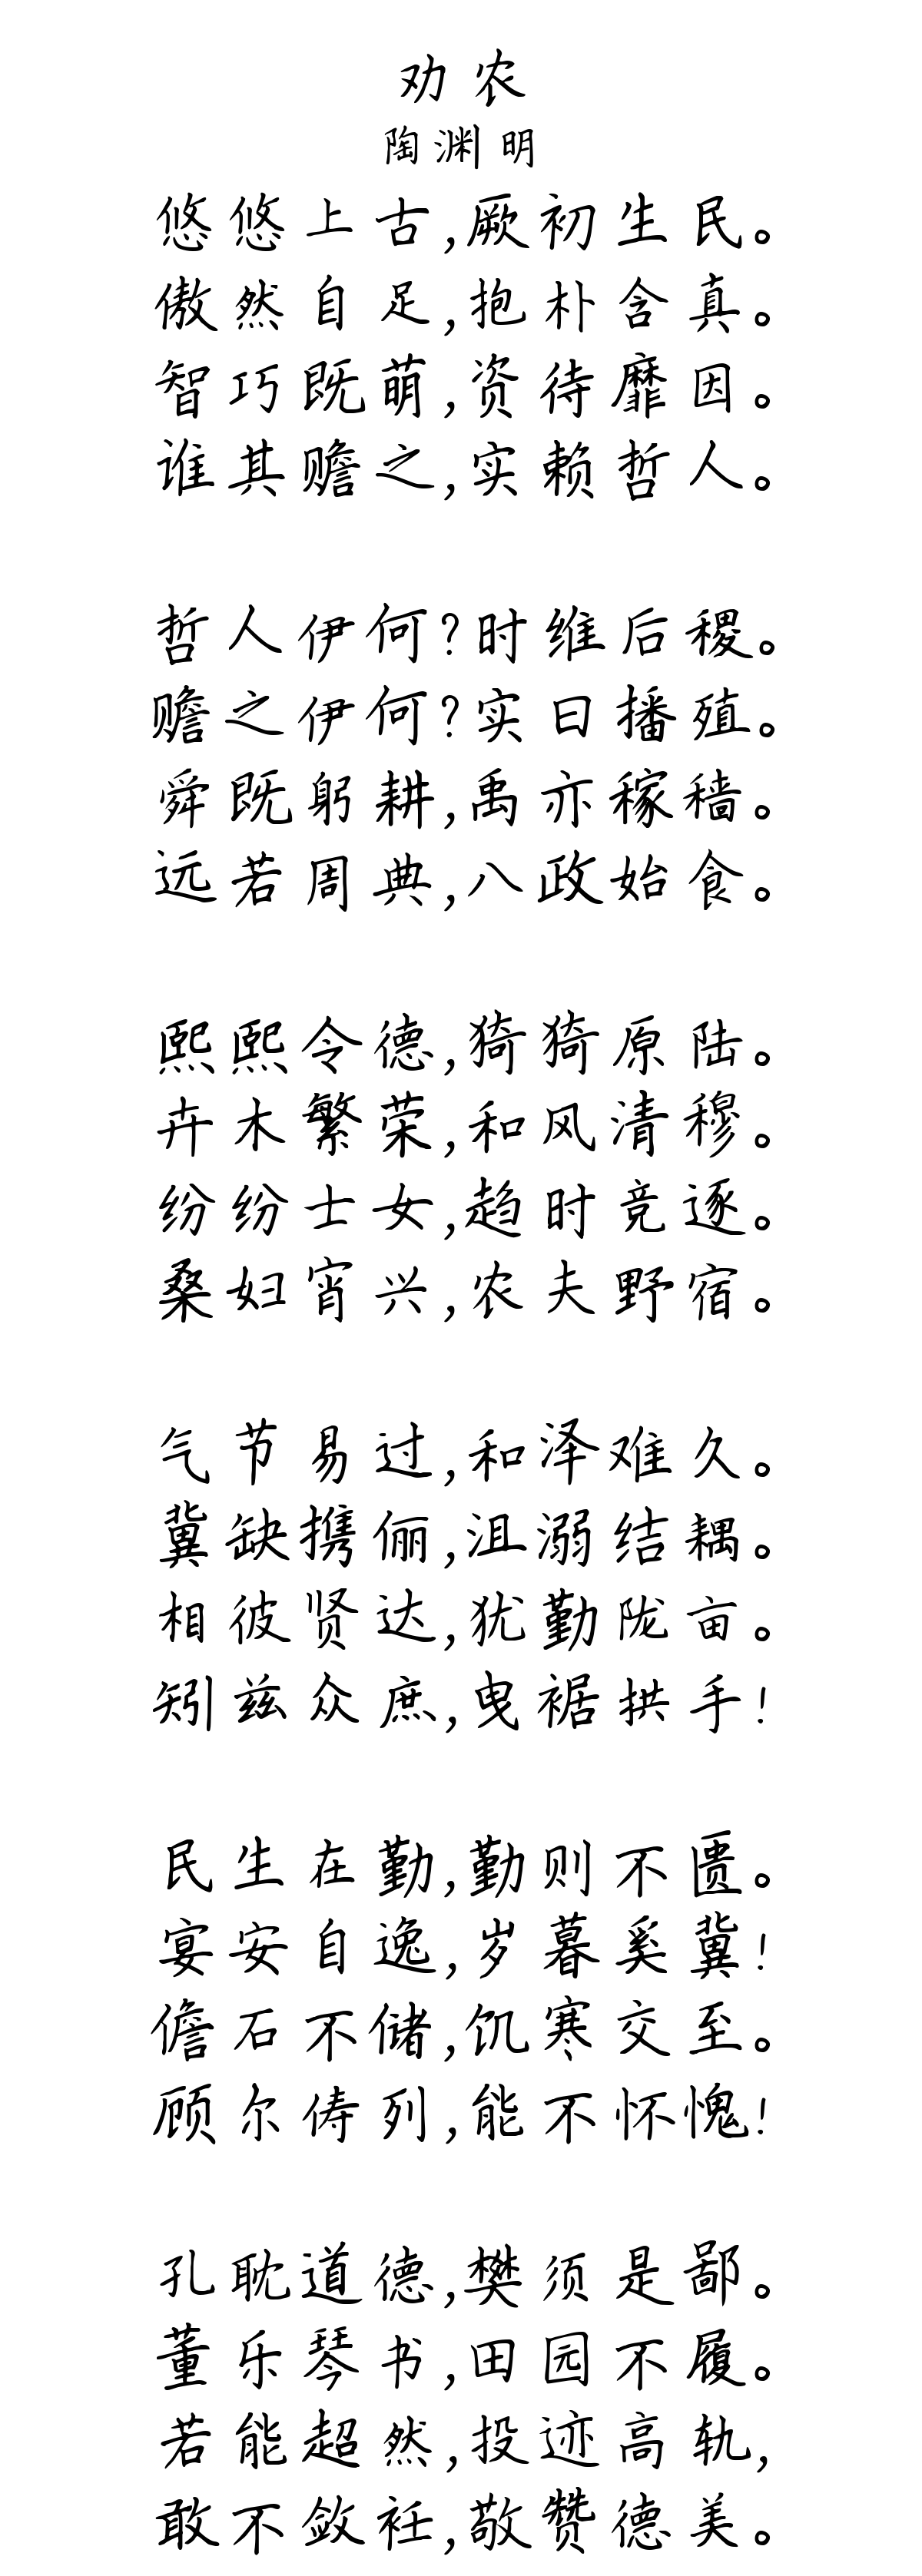 劝农
陶渊明
悠悠上古,厥初生民。
傲然自足,抱朴含真。
智巧既萌,资待靡因。
谁其赡之,实赖哲人。
哲人伊何?时维后稷。
赡之伊何?实曰播殖。
舜既躬耕,禹亦稼穑。
远若周典,八政始食。
熙熙令德,猗猗原陆。
卉木繁荣,和风清穆。
纷纷士女,趋时竞逐。
桑妇宵兴,农夫野宿。
气节易过,和泽难久。
冀缺携俪,沮溺结耦。
相彼贤达,犹勤陇亩。
矧兹众庶,曳裾拱手!
民生在勤,勤则不匮。
宴安自逸,岁暮奚冀!
儋石不储,饥寒交至。
顾尔俦列,能不怀愧!
孔耽道德,樊须是鄙。
董乐琴书,田园不履。
若能超然,投迹高轨,
敢不敛衽,敬赞德美。